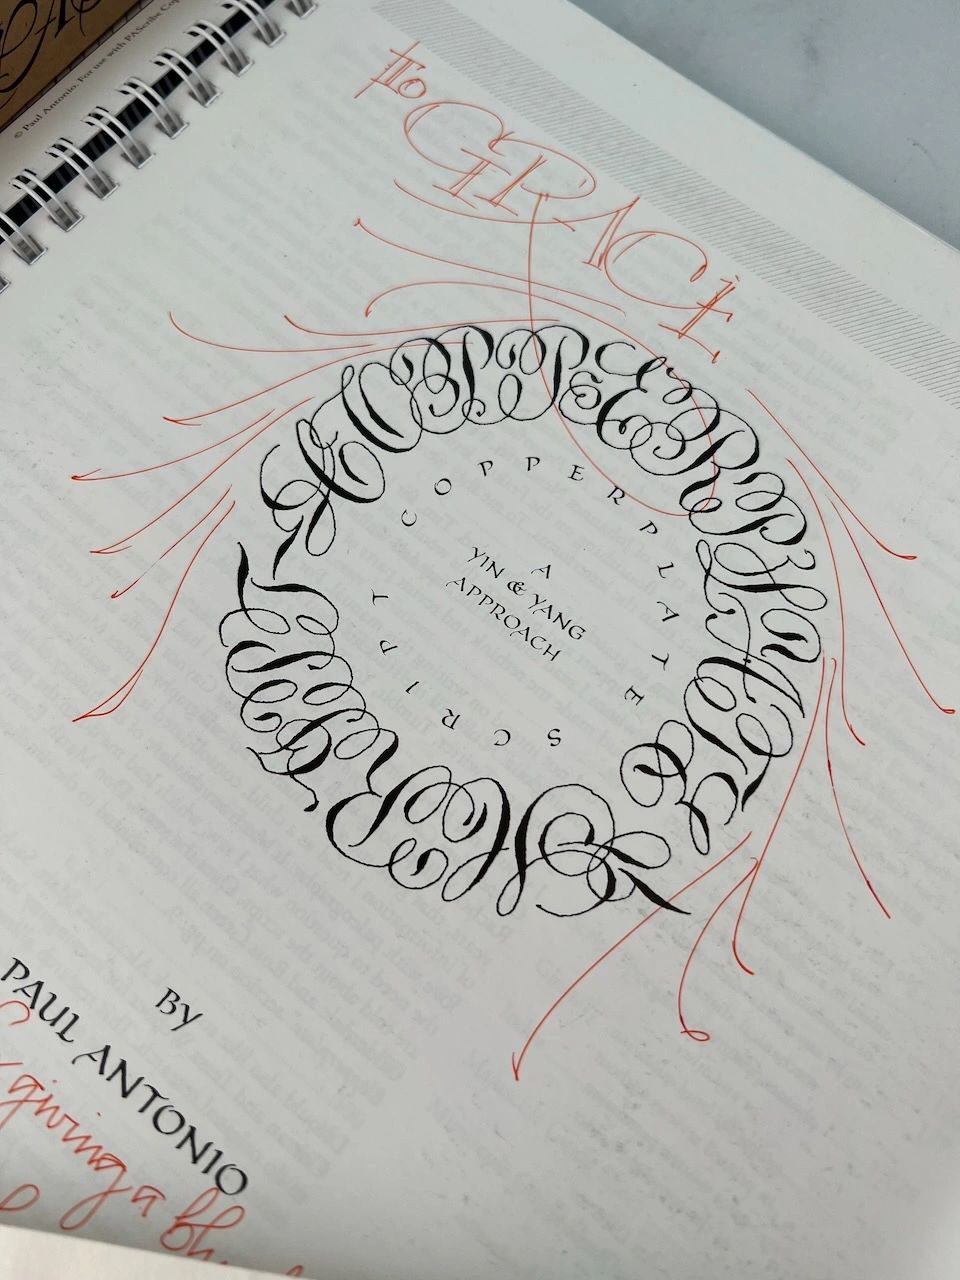 © Paul Antonio. For use with PAScribe
To GRACE
COPPERPLATE
COPPERPLATE SCRIPT
A
YIN & YANG
APPROACH
By
PAUL ANTONIO
giving a